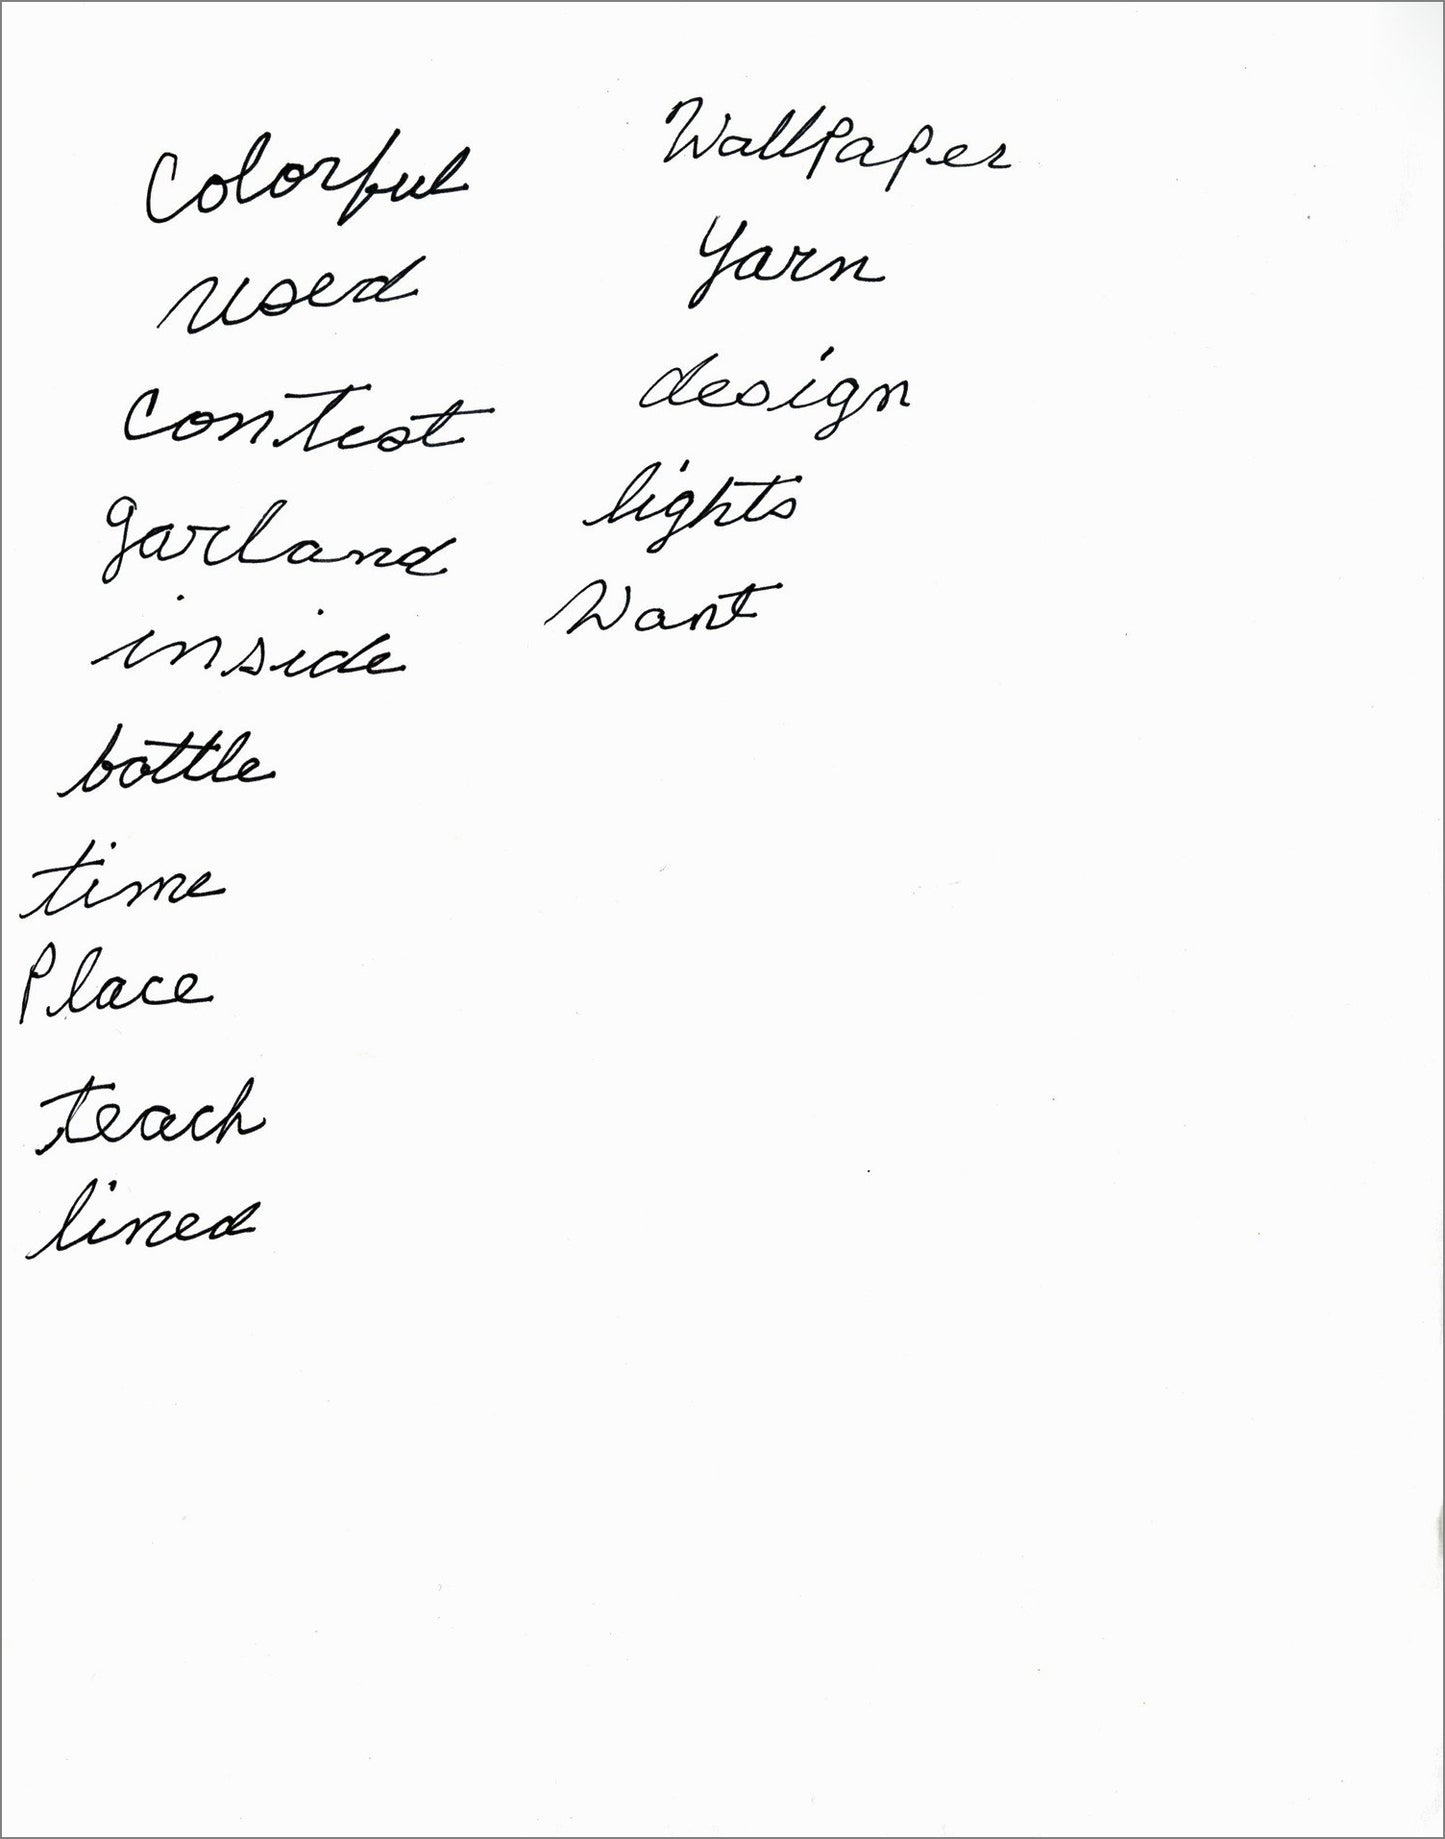 Colorful
used
contest
garland
inside
bottle
time
Place
teach
lined
Wallpaper
Yarn
design
lights
Want